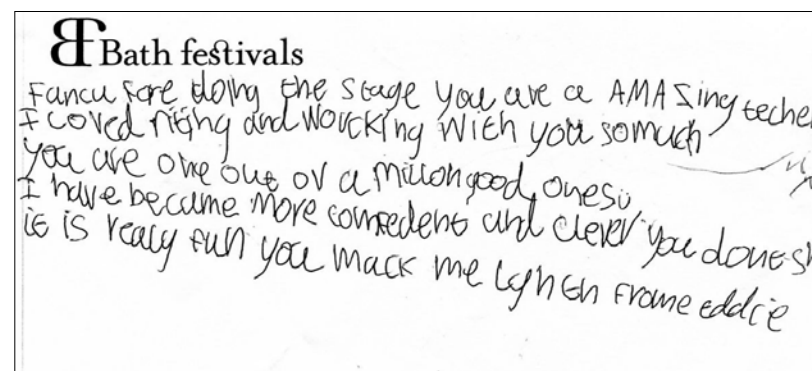 Bath festivals
Fancu fore doing the stage you are a AMAZing techer
I loved riting and Worcking with you somuch
you are one out ov a millon good ones
I have became more comfedent and clever you done sh
it is realy fun you mack me
frome eddie